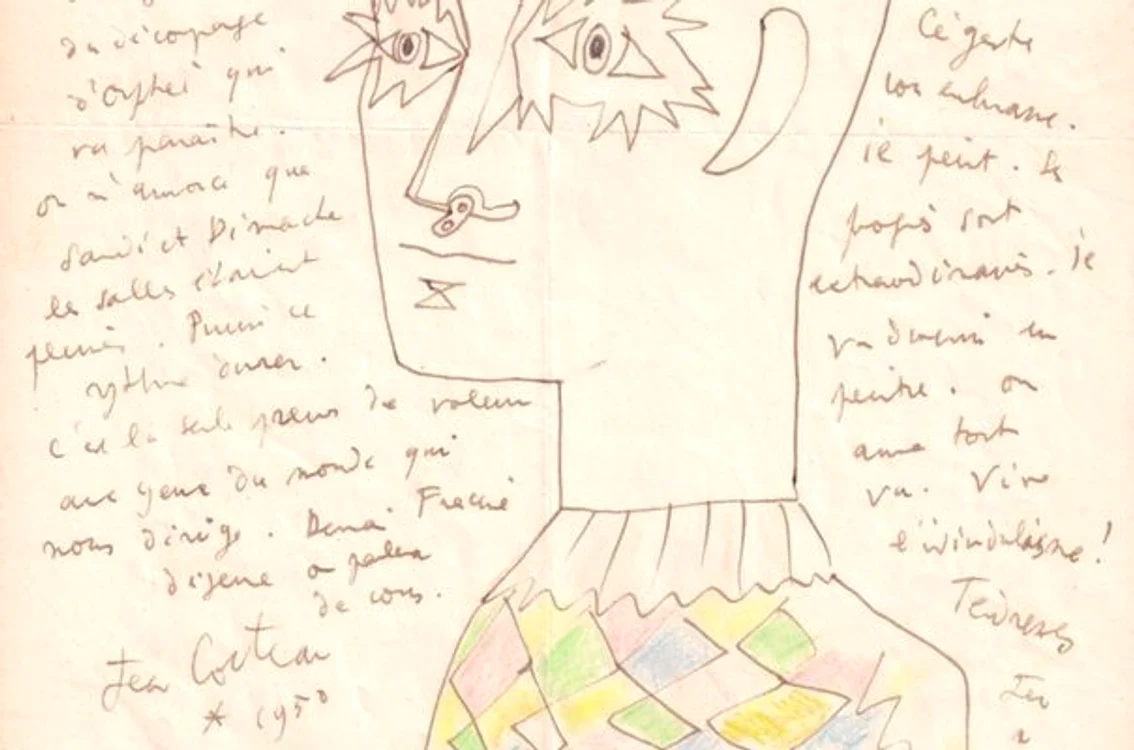 du découpage
d'Orphée qui
va paraître.
on m'annonce que
Samedi et Dimanche
les salles étaient
pleines. Puisse ce
rythme durer.
c'est la seule preuve de valeur
aux yeux du monde qui
nous dirige. Demai Francine
déjeune on parlera
de vous.
Jean Cocteau
* 1950
Ce geste
vous embrasse.
il peint. Ses
sont
extraordinaires. Il
va devenir un
peintre. on
aura tout
vu. Vive
Tendresses
Jean